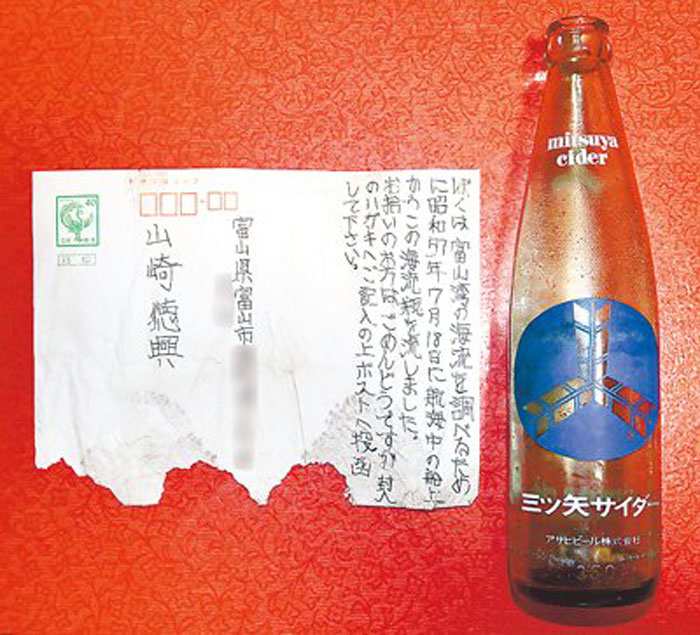 ぼくは富山湾の海流を調べるため
に昭和57年7月18日に航海中の船上
からこの海流瓶を流しました。
お拾いの方は、ごめんどうですが封入
のハガキへご記入の上ポストへ投函
して下さい。
富山県富山市
山崎徳興
40
mitsuya
cider
三ツ矢サイダー
アサヒビール株式会社
350